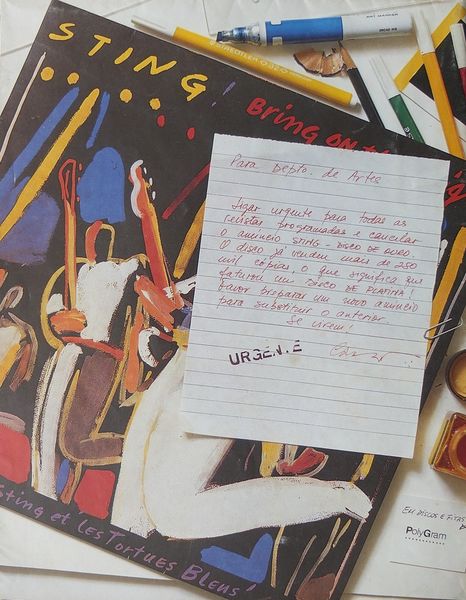 STING!
Bring ON
Para Depto. de Artes
Ligar urgente para todas as
revistas programadas e cancelar
o anúncio STING - DISCO DE OURO.
O disco já vendeu mais de 250
mil cópias o que significa que
faturou um DISCO DE PLATINA!
Favor preparar um novo anúncio
para substituir o anterior.
Se virem!
URGENTE
EM DISCOS E FITAS
PolyGram
Sting et Les Tortues Bleus'